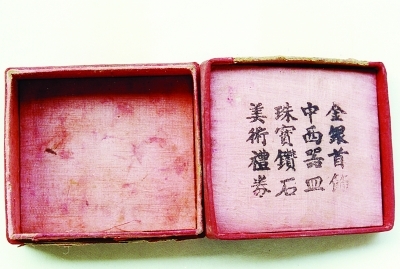 金銀首飾
中西器皿
珠寶鑽石
美術禮券